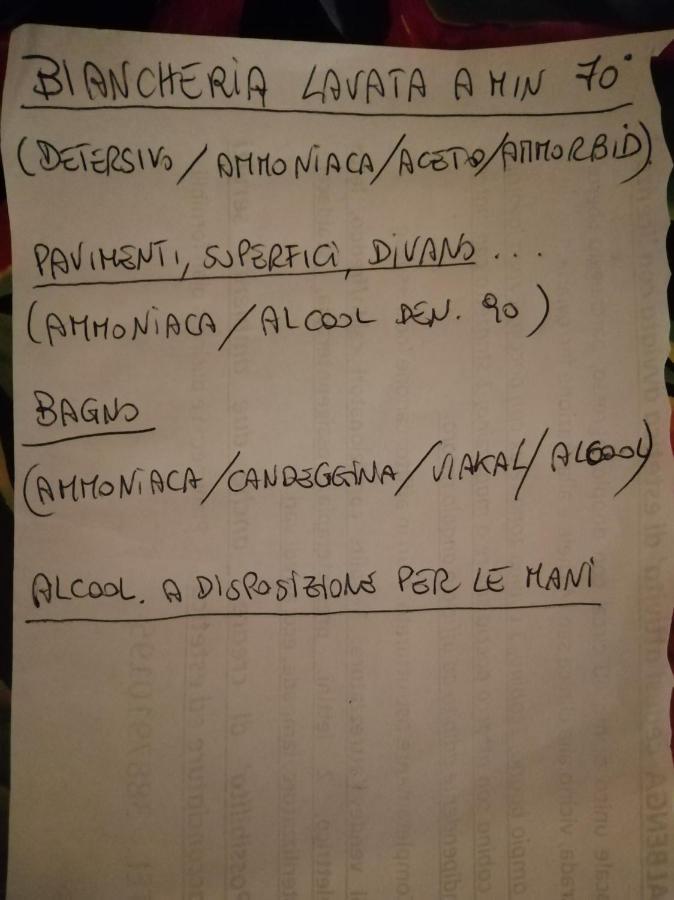 BIANCHERIA LAVATA A MIN 70°
(DETERSIVO/AMMONIACA/ACETO/AMMORBID)
PAVIMENTI, SUPERFICI, DIVANO...
(AMMONIACA/ALCOOL DEN. 90)
BAGNO
(AMMONIACA/CANDEGGINA/VIAKAL/ALCOOL)
ALCOOL. A DISPOSIZIONE PER LE MANI